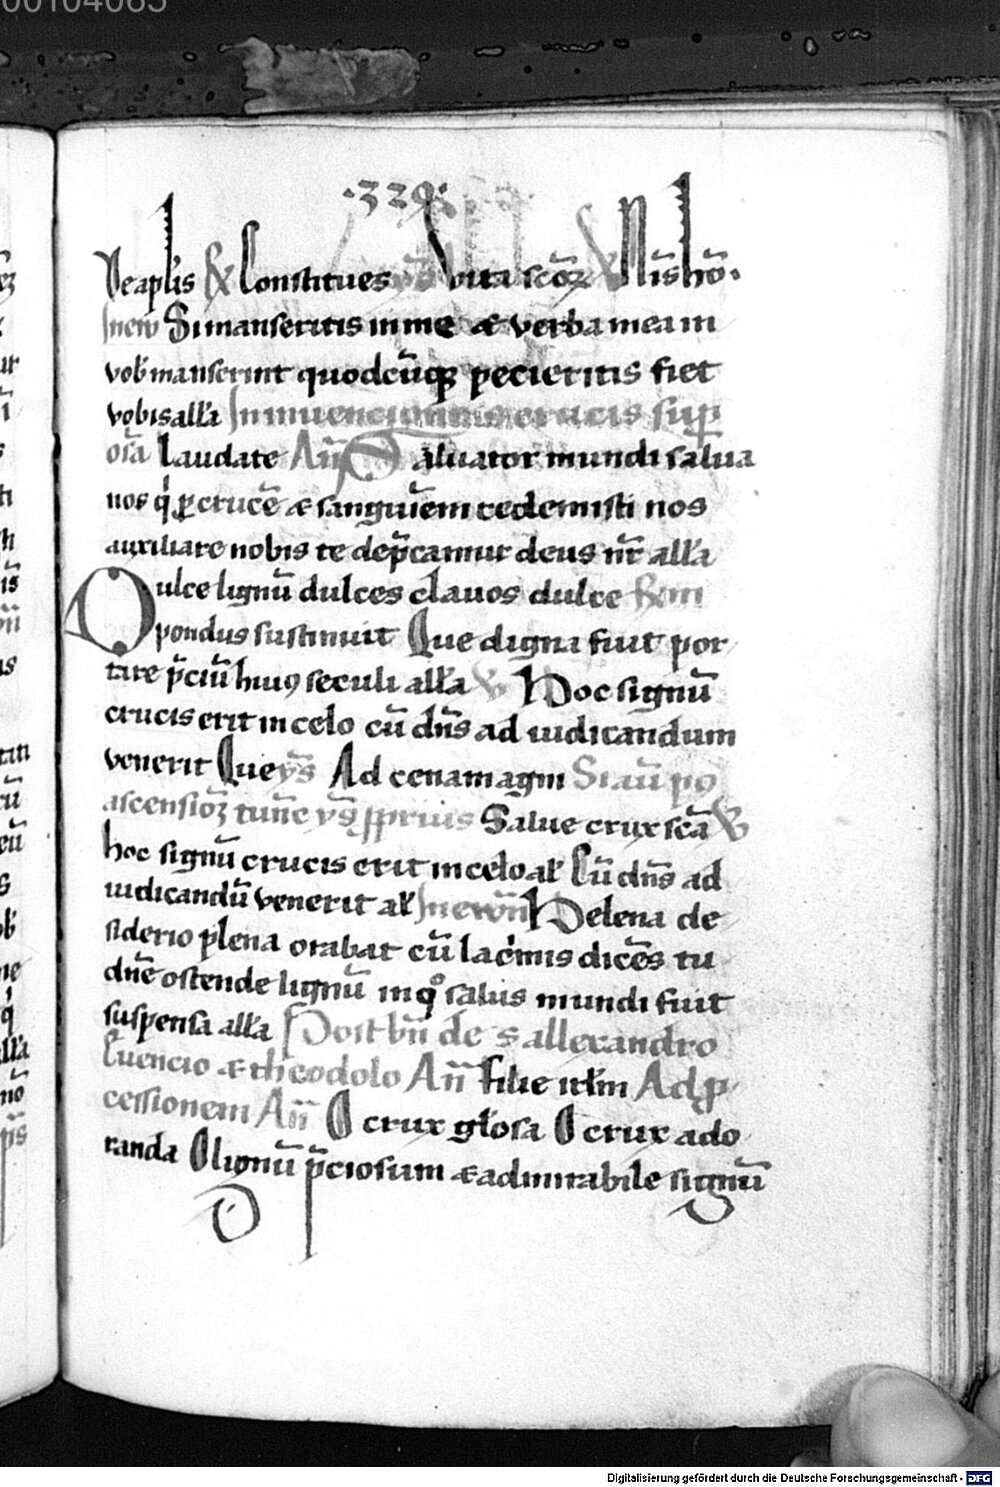 00104065
·329·
De aplis Rx Constitues ys Vita scōꝝ V Nīs hō.
In ew Si manseritis in me et verba mea in
vob manserint quodcūqꝫ pecieritis fiet
vobis alla In inuencione crucis sup
oīa Laudate Añ Saluator mundi salua
nos q̇ ꝑ crucē et sanguīem redemisti nos
auxiliare nobis te dep̄camur deus nr̄ alla
Dulce lignū dulces clauos dulce Rm
pondus sustinuit Que digna fuit por
tare p̄ciū huiꝯ seculi alla V Hoc signū
crucis erit in celo cū dn̄s ad iudicandum
venerit Que ys Ad cenam agni Si aū po
ascensioꝫ tūc ys prius Salue crux scā V
hoc signū crucis erit in celo al Cū dn̄s ad
iudicandū venerit al In ew Helena de
siderio plena orabat cū lacimis dicēs tu
dn̄e ostende lignū in qͦ salus mundi fuit
suspensa alla Post bn̄ de s allexandro
Euencio et theodolo Añ filie irlm Ad ꝓ
cessionem Añ O crux glosa O crux ado
randa O lignū p̄ciosum et admirabile signū
Digitalisierung gefördert durch die Deutsche Forschungsgemeinschaft - DFG